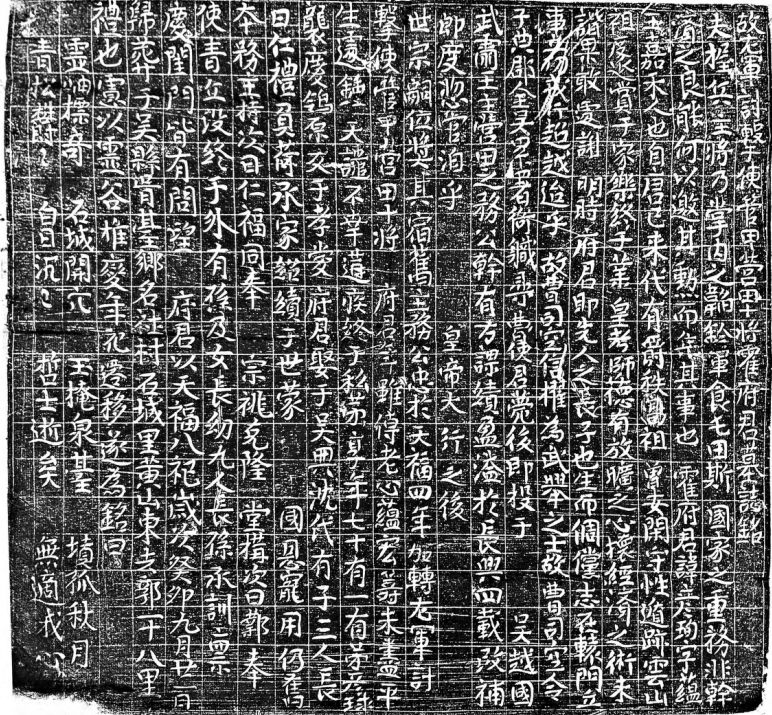 故右軍討擊使管甲營田十將霍府君墓誌銘
夫握兵主將乃掌内之韜鈐軍食屯田斯 國家之重務非幹
濟之良能何以邀其勳而集其事也 霍府君諱彥珣字蘊
玉嘉禾人也自周已来代有爵秩 祖 曾安閑守性遁跡雲山
祖度遊賞于家樂終于業 皇考師德有放曠之心懷經濟之術未
諧果敢處謝 明時 府君即先人之長子也生而倜儻志在轅門立
事務 超越迨乎 故曹司空信擢為武舉之士故曹司空令
子典彫全吴 署衙職尋曲侯君薨後即投于 吴越國
武肅王主營田之務公幹有方課績盈溢於長興四載改補
節度 管洎乎 皇帝大行之後
世宗嗣位獎其宿舊主務公忠於天福四年加轉右軍討
擊使管甲營田十將 府君年雖傳老心蘊宏籌未盡平
生遽鍾天 不幸遘疾終于私第享年七十有一有弟彥球
襲慶鴒原友于孝愛府君娶于吴興沈代有子三人長
曰仁禮員荷承家紹續于世蒙 國恩寵用仍舊
本務主持次曰仁福同奉 宗祧克隆 堂構次曰鄰奉
使青丘没終于外有孫及女長幼九人長孫承訓 禀
慶閨門皆有問望 府君以天福八祀歲次癸卯九月廿二日
歸葬于吴縣胥臺鄉名社村石城里黄山東去郭一十八里
禮也慮以靈谷椎變年祀遷移遂為銘曰
靈岫標奇 石城開穴 玉掩泉臺 墳孤秋月
青松黯々 白日沉々 哲士逝矣 無適我心